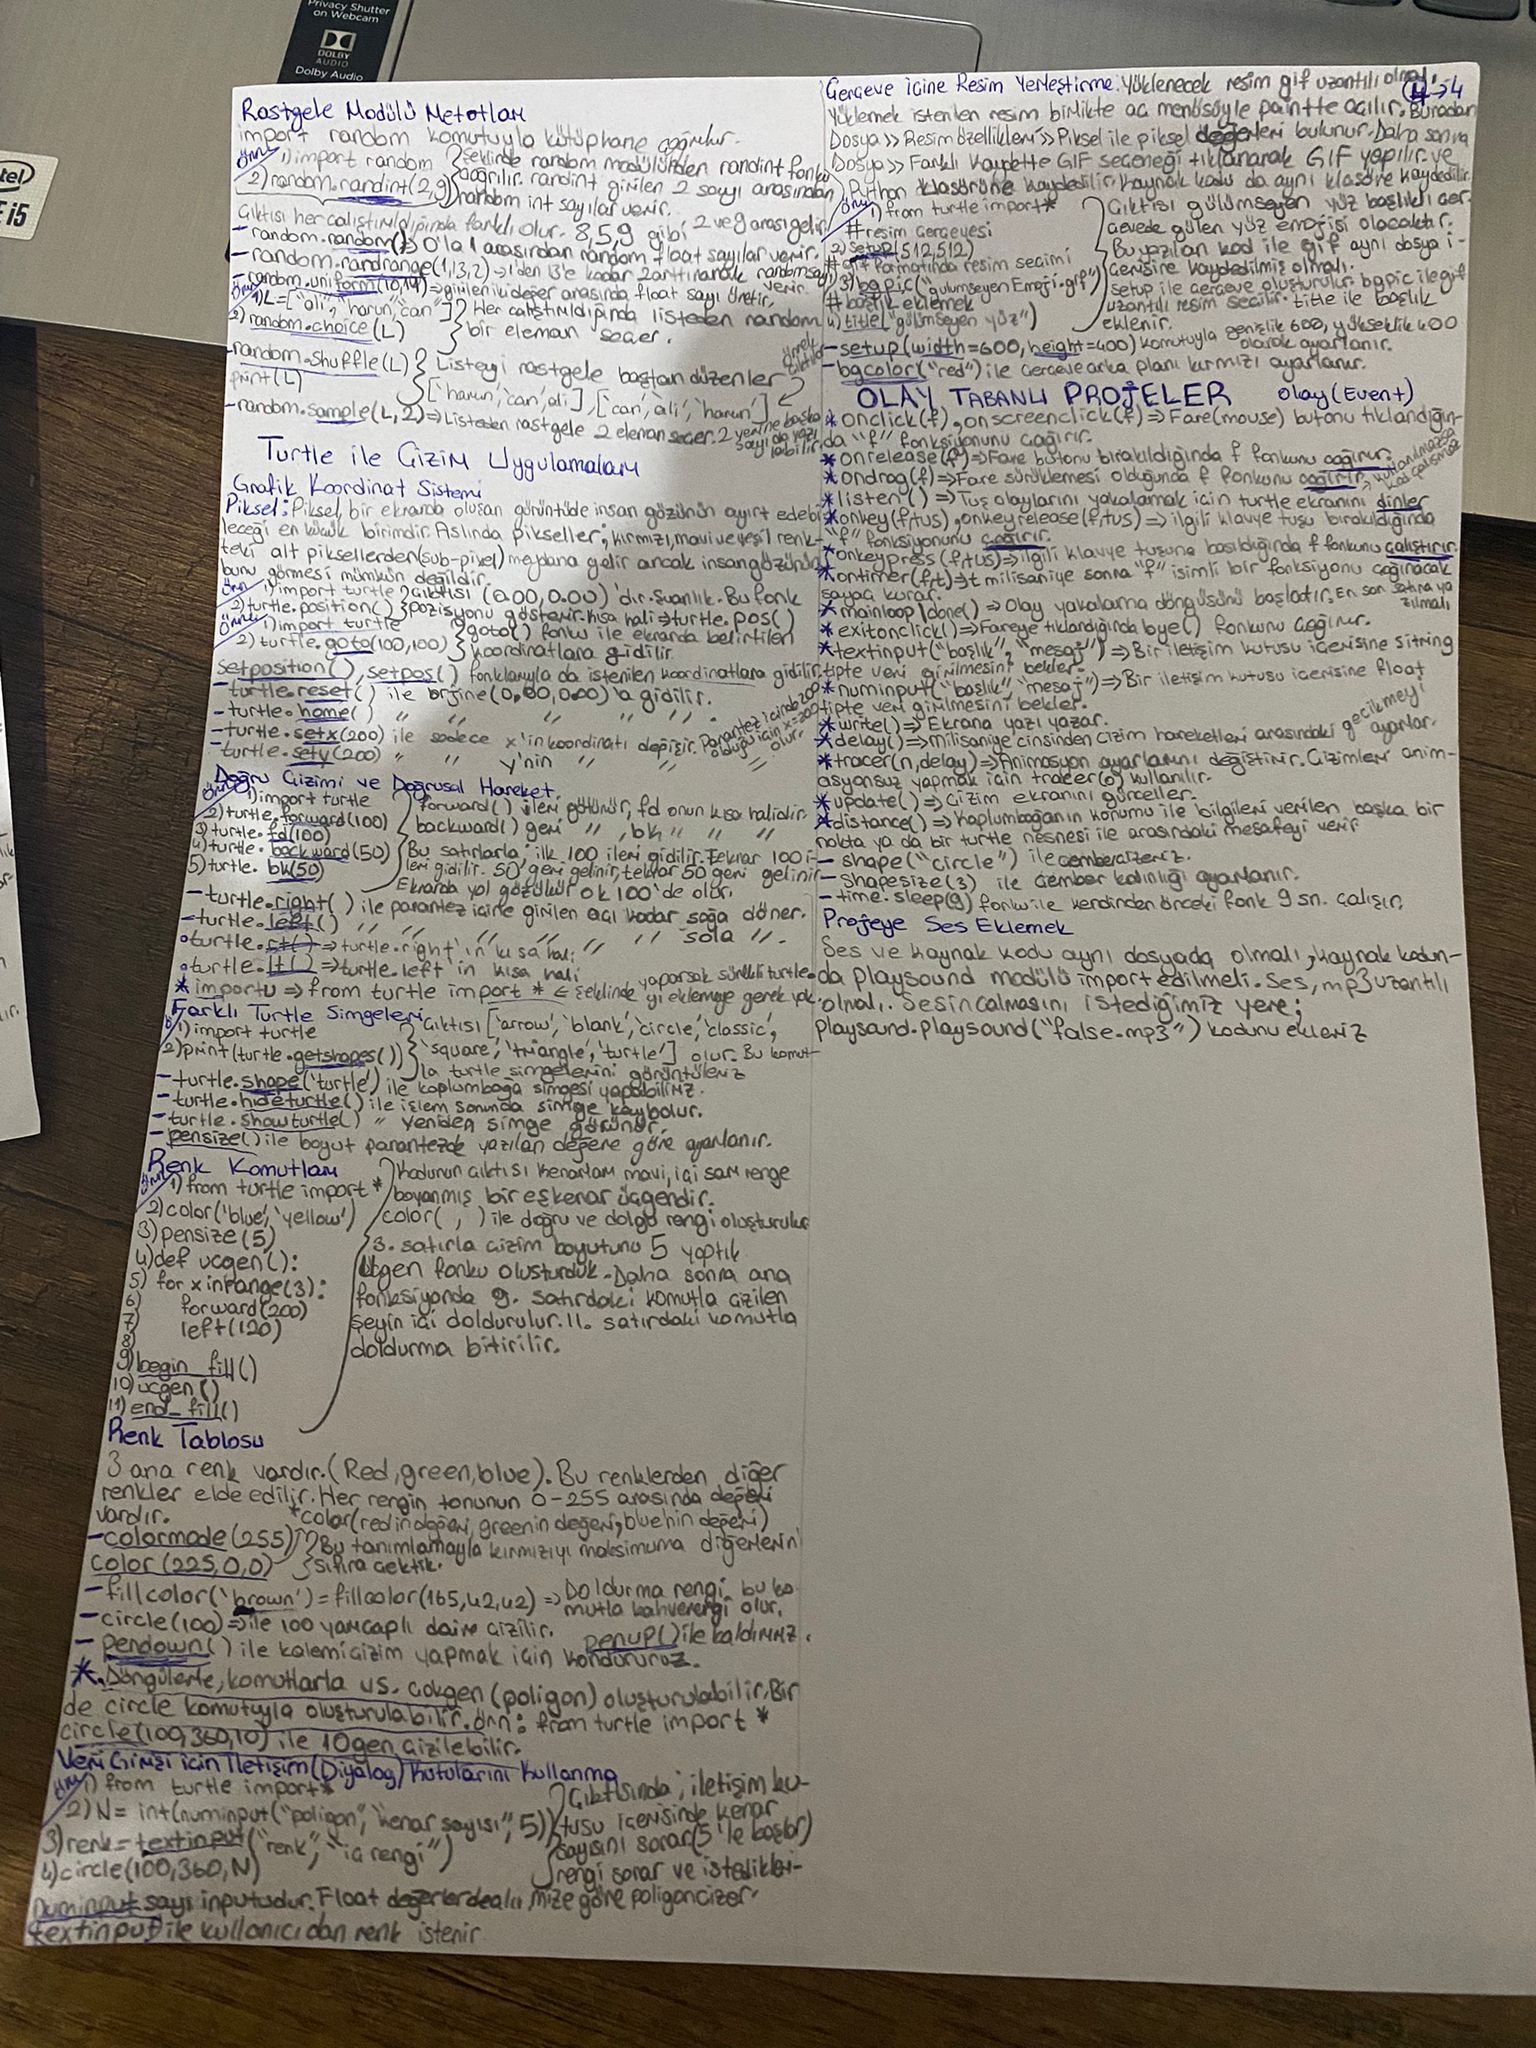 Privacy Shutter
on Webcam
DOLBY
AUDIO
Dolby Audio
intel
i5
Rastgele Modülü Metotları
import random komutuyla kütüphane çağrılır.
Örn: 1) import random
2) random.randint(2,9)
şeklinde random modülünden randint fonku
çağrılır. randint girilen 2 sayı arasından
random int sayılar verir.
Çıktısı her çalıştırıldığında farklı olur. 8,5,9 gibi 2 ve 9 arası gelir
- random.random() => 0'la 1 arasından random float sayılar verir.
- random.randrange(1,13,2) => 1'den 13'e kadar 2 arttırarak random sayı verir.
- random.uniform(10,14) => girilen iki değer arasında float sayı üretir.
Örn: 1) L=["ali","harun","can"]
2) random.choice(L)
Her çalıştırıldığında listeden random
bir eleman seçer.
- random.shuffle(L)
print(L)
Listeyi rastgele baştan düzenler
örnek çıktılar
['harun','can','ali'], ['can','ali','harun']
- random.sample(L,2) => Listeden rastgele 2 eleman seçer. 2 yerine başka
sayı da yazılabilir.
Turtle ile Çizim Uygulamaları
Grafik Koordinat Sistemi
Piksel: Piksel, bir ekranda oluşan görüntüde insan gözünün ayırt edebi-
leceği en küçük birimdir. Aslında pikseller; kırmızı, mavi ve yeşil renk-
teki alt piksellerden (sub-pixel) meydana gelir ancak insan gözünün
bunu görmesi mümkün değildir.
Örn: 1) import turtle
2) turtle.position()
Çıktısı (0.00,0.00)'dır şuanlık. Bu fonk
pozisyonu gösterir. Kısa hali => turtle.pos()
Örn: 1) import turtle
2) turtle.goto(100,100)
goto() fonku ile ekranda belirtilen
koordinatlara gidilir.
setposition(), setpos() fonklarıyla da istenilen koordinatlara gidilir.
- turtle.reset() ile orjine (0.00,0.00)'a gidilir.
- turtle.home() " " " " "
- turtle.setx(200) ile sadece x'in koordinatı değişir. Parantez içinde 200
olduğu için x=200 olur.
- turtle.sety(200) " " y'nin " " "
Doğru Çizimi ve Doğrusal Hareket
Örn: 1) import turtle
2) turtle.forward(100)
3) turtle.fd(100)
4) turtle.backward(50)
5) turtle.bk(50)
forward() ileri götürür, fd onun kısa halidir.
backward() geri " , bk " " "
Bu satırlarla; ilk 100 ileri gidilir. Tekrar 100 i-
leri gidilir. 50 geri gelinir, tekrar 50 geri gelinir
Ekranda yol gözükür ok 100'de olur.
- turtle.right() ile parantez içine girilen açı kadar sağa döner.
- turtle.left() " " " " " " sola ".
• turtle.rt() => turtle.right'ın kısa hali
• turtle.lt() => turtle.left'in kısa hali
* importu => from turtle import * <= şeklinde yaparsak sürekli turtle.
yi eklemeye gerek yok.
Farklı Turtle Simgeleri
Ö: 1) import turtle
2) print(turtle.getshapes())
Çıktısı ['arrow','blank','circle','classic',
'square','triangle','turtle'] olur. Bu komut-
la turtle simgelerini görüntüleriz
- turtle.shape('turtle') ile kaplumbağa simgesi yapabiliriz.
- turtle.hideturtle() ile işlem sonunda simge kaybolur.
- turtle.showturtle() " yeniden simge görünür.
- pensize() ile boyut parantezde yazılan değere göre ayarlanır.
Renk Komutları
Örn: 1) from turtle import *
2) color('blue','yellow')
3) pensize(5)
4) def ucgen():
5) for x in range(3):
6 forward(200)
7 left(120)
8
9) begin_fill()
10) ucgen()
11) end_fill()
Kodunun çıktısı kenarları mavi, içi sarı renge
boyanmış bir eşkenar üçgendir.
color( , ) ile doğru ve dolgu rengi oluşturulur
3. satırla çizim boyutunu 5 yaptık
Üçgen fonku oluşturduk. Daha sonra ana
fonksiyonda 9. satırdaki komutla çizilen
şeyin içi doldurulur. 11. satırdaki komutla
doldurma bitirilir.
Renk Tablosu
3 ana renk vardır. (Red, green, blue). Bu renklerden diğer
renkler elde edilir. Her rengin tonunun 0-255 arasında değeri
vardır. *color(redin değeri, greenin değeri, bluenin değeri)
- colormode(255)
color(225,0,0)
Bu tanımlamayla kırmızıyı maksimuma diğerlerini
sıfıra çektik.
- fillcolor('brown') = fillcolor(165,42,42) => Doldurma rengi bu ko-
mutla kahverengi olur.
- circle(100) => ile 100 yarıçaplı daire çizilir.
- pendown() ile kalemi çizim yapmak için kondururuz. penup() ile kaldırırız.
* Döngülerle, komutlarla vs. çokgen (poligon) oluşturulabilir. Bir
de circle komutuyla oluşturulabilir. Örn: from turtle import *
circle(100,360,10) ile 10gen çizilebilir.
Veri Girişi için İletişim (Diyalog) Kutularını Kullanma
Örn: 1) from turtle import *
2) N= int(numinput("poligon","kenar sayısı",5))
3) renk= textinput("renk","iç rengi")
4) circle(100,360,N)
Çıktısında; iletişim ku-
tusu içerisinde kenar
sayısını sorar (5'le başlar)
rengi sorar ve istedikleri-
mize göre poligon çizer.
numinput sayı inputudur. Float değerler de alır
textinput ile kullanıcıdan renk istenir
4
Çerçeve İçine Resim Yerleştirme: Yüklenecek resim gif uzantılı olmalı.
Yüklemek istenilen resim birlikte aç menüsüyle paintte açılır. Buradan
Dosya >> Resim özellikleri >> Piksel ile piksel değerleri bulunur. Daha sonra
Dosya >> Farklı Kaydette GIF seçeneği tıklanarak GIF yapılır ve
Python klasörüne kaydedilir. Kaynak kodu da aynı klasöre kaydedilir.
Örn: 1) from turtle import *
# resim çerçevesi
2) setup(512,512)
# gif formatında resim seçimi
3) bgpic("gulumseyenEmoji.gif")
# başlık eklemek
4) title("gülümseyen yüz")
Çıktısı gülümseyen yüz başlıklı çer-
çevede gülen yüz emojisi olacaktır.
Bu yazılan kod ile gif aynı dosya i-
çerisine kaydedilmiş olmalı.
setup ile çerçeve oluşturulur. bgpic ile gif
uzantılı resim seçilir. title ile başlık
eklenir.
- setup(width=600, height=400) komutuyla genişlik 600, yükseklik 400
olarak ayarlanır.
- bgcolor("red") ile çerçeve arka planı kırmızı ayarlanır.
OLAY TABANLI PROJELER olay (Event)
* onclick(f), onscreenclick(f) => Fare (mouse) butonu tıklandığın-
da "f" fonksiyonunu çağırır.
* onrelease(f) => Fare butonu bırakıldığında f fonkunu çağırır.
* ondrag(f) => Fare sürüklemesi olduğunda f fonkunu çağırır.
* listen() => Tuş olaylarını yakalamak için turtle ekranını dinler
-> kullanılmazsa kod çalışmaz
* onkey(f,tus), onkeyrelease(f,tus) => ilgili klavye tuşu bırakıldığında
"f" fonksiyonunu çağırır.
* onkeypress(f,tus) => ilgili klavye tuşuna basıldığında f fonkunu çalıştırır.
* ontimer(f,t) => t milisaniye sonra "f" isimli bir fonksiyonu çağıracak
sayaç kurar.
* mainloop/done() => Olay yakalama döngüsünü başlatır. En son satıra ya
zılmalı
* exitonclick() => Fareye tıklandığında bye() fonkunu çağırır.
* textinput("başlık","mesaj") => Bir iletişim kutusu içerisine sitring
tipte veri girilmesini bekler.
* numinput("başlık","mesaj") => Bir iletişim kutusu içerisine float
tipte veri girilmesini bekler.
* write() => Ekrana yazı yazar.
* delay() => Milisaniye cinsinden çizim hareketleri arasındaki gecikmeyi
ayarlar.
* tracer(n,delay) => Animasyon ayarlarını değiştirir. Çizimleri anim-
asyonsuz yapmak için tracer(0) kullanılır.
* update() => Çizim ekranını günceller.
* distance() => Kaplumbağanın konumu ile bilgileri verilen başka bir
nokta ya da bir turtle nesnesi ile arasındaki mesafeyi verir
- shape("circle") ile çember çizeriz.
- shapesize(3) ile çember kalınlığı ayarlanır.
- time.sleep(9) fonku ile kendinden önceki fonk 9 sn. çalışır.
Projeye Ses Eklemek
Ses ve kaynak kodu aynı dosyada olmalı, kaynak kodun-
da playsound modülü import edilmeli. Ses, mp3 uzantılı
olmalı. Sesin çalmasını istediğimiz yere;
playsound.playsound("false.mp3") kodunu ekleriz